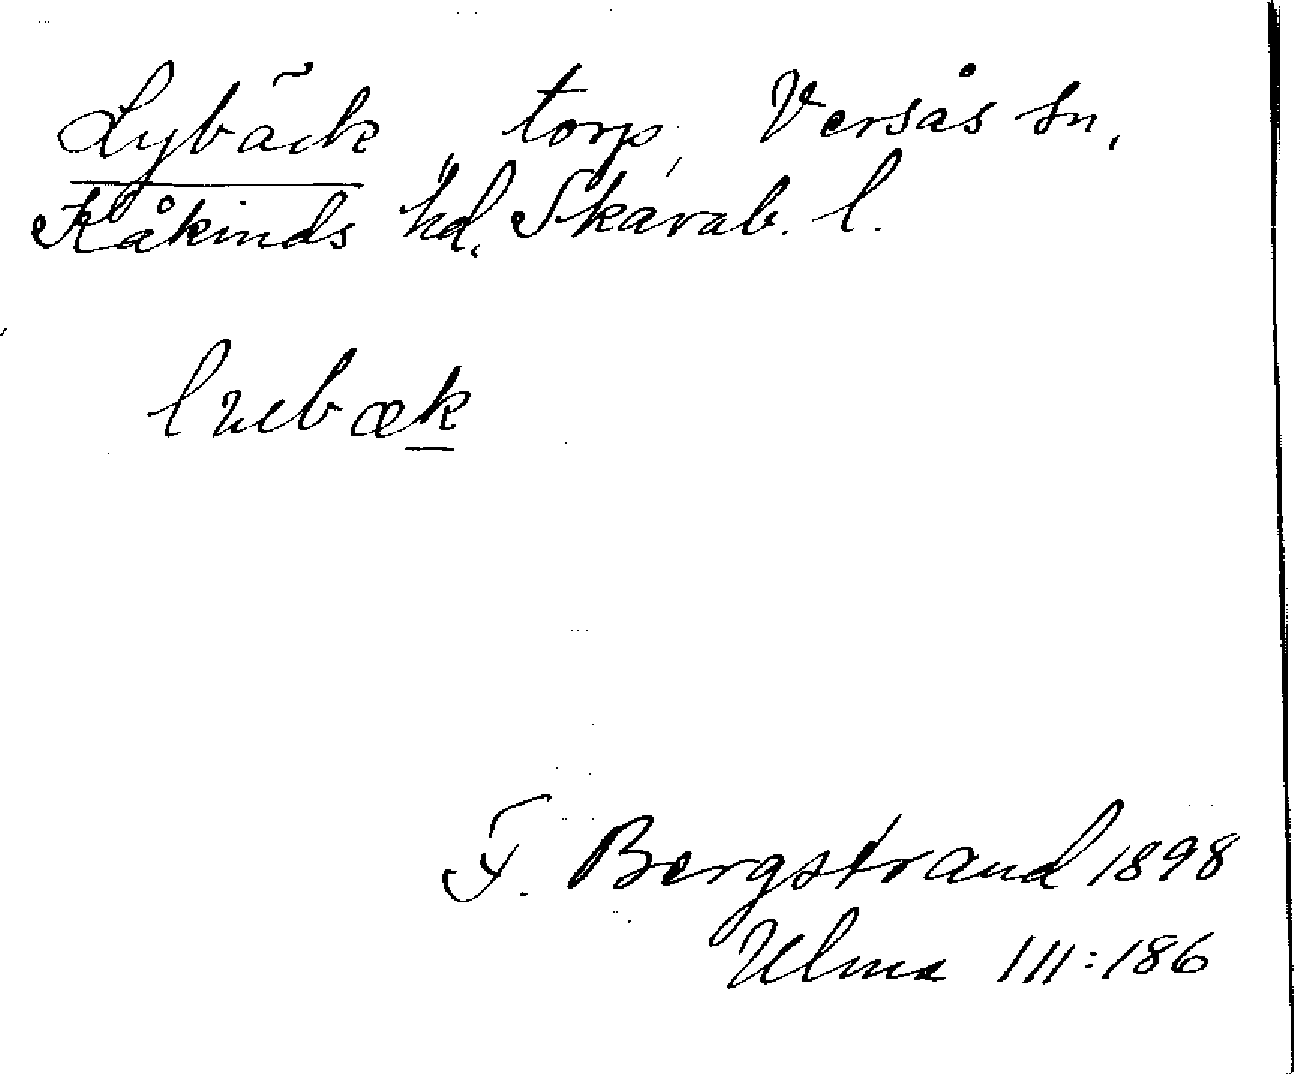 Lybäck, torp, Versås sn,
Kåkinds hd, Skarab. l.
F. Bergstrand 1898
Ulma III:186